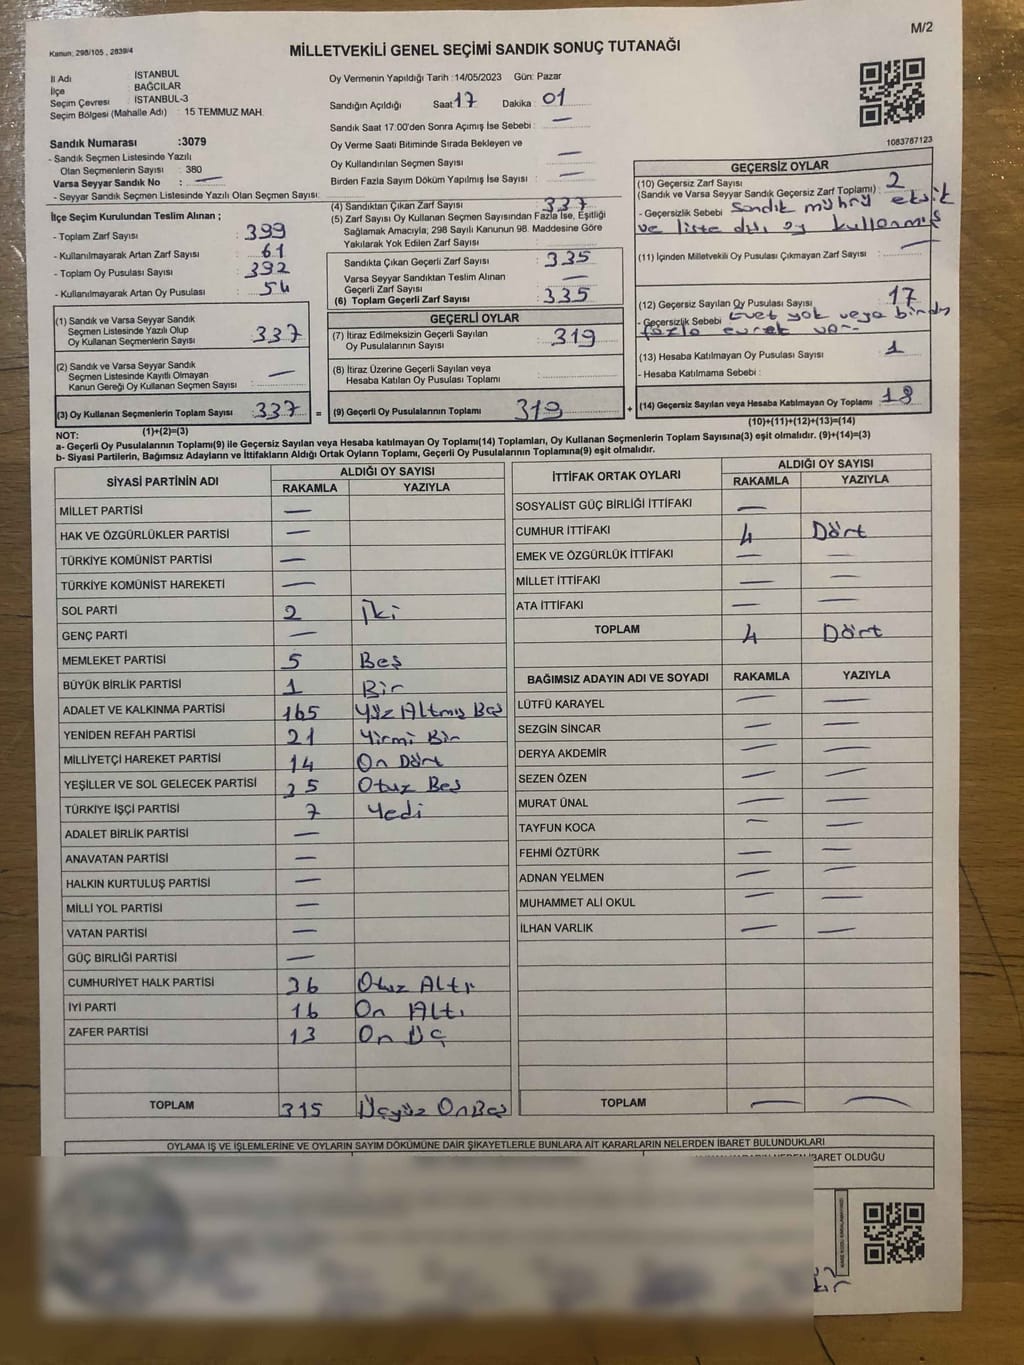 M/2
Kanun: 298/105 , 2839/4
MİLLETVEKİLİ GENEL SEÇİMİ SANDIK SONUÇ TUTANAĞI
İl Adı : İSTANBUL
İlçe : BAĞCILAR
Seçim Çevresi : İSTANBUL-3
Seçim Bölgesi (Mahalle Adı) : 15 TEMMUZ MAH.
Oy Vermenin Yapıldığı Tarih : 14/05/2023 Gün: Pazar
Sandığın Açıldığı Saat 17 Dakika : 01
Sandık Saat 17:00'den Sonra Açımış İse Sebebi : —
Oy Verme Saati Bitiminde Sırada Bekleyen ve
Oy Kullandırılan Seçmen Sayısı : —
Birden Fazla Sayım Döküm Yapılmış İse Sayısı : —
1083787123
Sandık Numarası :3079
- Sandık Seçmen Listesinde Yazılı
Olan Seçmenlerin Sayısı : 380
Varsa Seyyar Sandık No : —
- Seyyar Sandık Seçmen Listesinde Yazılı Olan Seçmen Sayısı:
İlçe Seçim Kurulundan Teslim Alınan ;
- Toplam Zarf Sayısı : 399
- Kullanılmayarak Artan Zarf Sayısı : 61
- Toplam Oy Pusulası Sayısı : 392
- Kullanılmayarak Artan Oy Pusulası : 54
(1) Sandık ve Varsa Seyyar Sandık
Seçmen Listesinde Yazılı Olup
Oy Kullanan Seçmenlerin Sayısı : 337
(2) Sandık ve Varsa Seyyar Sandık
Seçmen Listesinde Kayıtlı Olmayan
Kanun Gereği Oy Kullanan Seçmen Sayısı : —
(3) Oy Kullanan Seçmenlerin Toplam Sayısı : 337 =
(1)+(2)=(3)
(4) Sandıktan Çıkan Zarf Sayısı : 337
(5) Zarf Sayısı Oy Kullanan Seçmen Sayısından Fazla İse, Eşitliği
Sağlamak Amacıyla; 298 Sayılı Kanunun 98. Maddesine Göre
Yakılarak Yok Edilen Zarf Sayısı :
Sandıkta Çıkan Geçerli Zarf Sayısı : 335
Varsa Seyyar Sandıktan Teslim Alınan
Geçerli Zarf Sayısı : —
(6) Toplam Geçerli Zarf Sayısı : 335
GEÇERLİ OYLAR
(7) İtiraz Edilmeksizin Geçerli Sayılan
Oy Pusulalarının Sayısı : 319
(8) İtiraz Üzerine Geçerli Sayılan veya
Hesaba Katılan Oy Pusulası Toplamı :
(9) Geçerli Oy Pusulalarının Toplamı 319 +
GEÇERSİZ OYLAR
(10) Geçersiz Zarf Sayısı
(Sandık ve Varsa Seyyar Sandık Geçersiz Zarf Toplamı) : 2
- Geçersizlik Sebebi Sandık mührü eksik
ve liste dışı oy kullanmış
(11) İçinden Milletvekili Oy Pusulası Çıkmayan Zarf Sayısı : —
(12) Geçersiz Sayılan Oy Pusulası Sayısı : 17
- Geçersizlik Sebebi Evet yok veya birden
fazla evrak var
(13) Hesaba Katılmayan Oy Pusulası Sayısı : 1
- Hesaba Katılmama Sebebi :
(14) Geçersiz Sayılan veya Hesaba Katılmayan Oy Toplamı : 18
(10)+(11)+(12)+(13)=(14)
NOT:
a- Geçerli Oy Pusulalarının Toplamı(9) ile Geçersiz Sayılan veya Hesaba katılmayan Oy Toplamı(14) Toplamları, Oy Kullanan Seçmenlerin Toplam Sayısına(3) eşit olmalıdır. (9)+(14)=(3)
b- Siyasi Partilerin, Bağımsız Adayların ve İttifakların Aldığı Ortak Oyların Toplamı, Geçerli Oy Pusulalarının Toplamına(9) eşit olmalıdır.
SİYASİ PARTİNİN ADI ALDIĞI OY SAYISI
RAKAMLA YAZIYLA
MİLLET PARTİSİ —
HAK VE ÖZGÜRLÜKLER PARTİSİ —
TÜRKİYE KOMÜNİST PARTİSİ —
TÜRKİYE KOMÜNİST HAREKETİ —
SOL PARTİ 2 İki
GENÇ PARTİ —
MEMLEKET PARTİSİ 5 Beş
BÜYÜK BİRLİK PARTİSİ 1 Bir
ADALET VE KALKINMA PARTİSİ 165 Yüz Altmış Beş
YENİDEN REFAH PARTİSİ 21 Yirmi Bir
MİLLİYETÇİ HAREKET PARTİSİ 14 On Dört
YEŞİLLER VE SOL GELECEK PARTİSİ 35 Otuz Beş
TÜRKİYE İŞÇİ PARTİSİ 7 Yedi
ADALET BİRLİK PARTİSİ —
ANAVATAN PARTİSİ —
HALKIN KURTULUŞ PARTİSİ —
MİLLİ YOL PARTİSİ —
VATAN PARTİSİ —
GÜÇ BİRLİĞİ PARTİSİ —
CUMHURİYET HALK PARTİSİ 36 Otuz Altı
İYİ PARTİ 16 On Altı
ZAFER PARTİSİ 13 On Üç
TOPLAM 315 Üçyüz OnBeş
İTTİFAK ORTAK OYLARI ALDIĞI OY SAYISI
RAKAMLA YAZIYLA
SOSYALİST GÜÇ BİRLİĞİ İTTİFAKI —
CUMHUR İTTİFAKI 4 Dört
EMEK VE ÖZGÜRLÜK İTTİFAKI — —
MİLLET İTTİFAKI — —
ATA İTTİFAKI — —
TOPLAM 4 Dört
BAĞIMSIZ ADAYIN ADI VE SOYADI RAKAMLA YAZIYLA
LÜTFÜ KARAYEL — —
SEZGİN SİNCAR — —
DERYA AKDEMİR — —
SEZEN ÖZEN — —
MURAT ÜNAL — —
TAYFUN KOCA — —
FEHMİ ÖZTÜRK — —
ADNAN YELMEN — —
MUHAMMET ALİ OKUL — —
İLHAN VARLIK — —
TOPLAM — —
OYLAMA İŞ VE İŞLEMLERİNE VE OYLARIN SAYIM DÖKÜMÜNE DAİR ŞİKAYETLERLE BUNLARA AİT KARARLARIN NELERDEN İBARET BULUNDUKLARI
İBARET OLDUĞU